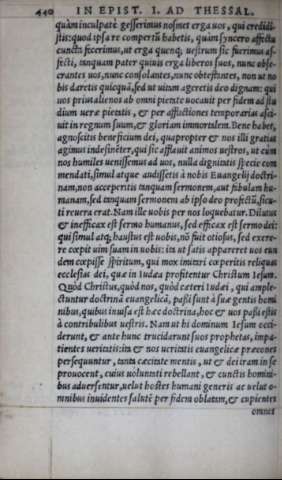 440 IN EPIST. I. AD THESSAL.
quàm inculpatè gesserimus nosmet erga uos, qui credidi-
stis: quod ipsa re compertũ habetis, quàm syncero affectu
cuncta fecerimus, ut erga quenq; uestrum sic fuerimus af-
fecti, tanquam pater quiuis erga liberos suos, nunc obse-
crantes uos, nunc consolantes, nunc obtestantes, non ut no
bis daretis quicquã, sed ut uitam ageretis deo dignam: qui
uos prius alienos ab omni pietate uocauit per fidem ad stu
dium ueræ pietatis, & per afflictiones temporarias asci-
uit in regnum suum, & gloriam immortalem. Bene habet,
agnoscitis beneficium dei, quapropter & nos illi gratias
agimus indesinẽter, qui sic afflauit animos uestros, ut cum
nos humiles uenissemus ad uos, nulla dignitatis specie com
mendati, simul atque audissetis à nobis Euangelij doctri-
nam, non acceperitis tanquam sermonem, aut fabulam hu-
manam, sed tanquam sermonem ab ipso deo profectũ, sicu-
ti reuera erat. Nam ille uobis per nos loquebatur. Dilutus
& inefficax est sermo humanus, sed efficax est sermo dei:
qui simul atq; haustus est uobis, nõ fuit otiosus, sed exere-
re cœpit uim suam in uobis: ita ut satis appareret uos eun
dem cœpisse spiritum, qui mox imitari cœperitis reliquas
ecclesias dei, quæ in Iudæa profitentur Christum Iesum.
Quòd Christus, quòd nos, quòd cæteri Iudæi, qui ample-
ctuntur doctrinã euangelicã, passi sunt à suæ gentis homi
nibus, quibus inuisa est hæc doctrina, hoc & uos passi estis
à contribulibus uestris. Nam ut hi dominum Iesum occi-
derunt, & ante hunc trucidarunt suos prophetas, impa-
tientes ueritatis: ita & nos ueritatis euangelicæ præcones
persequuntur, tanta cæcitate mentis, ut & dei iram in se
prouocent, cuius uoluntati rebellant, & cunctis homini-
bus aduersentur, uelut hostes humani generis ac uelut o-
mnibus inuidentes salutẽ per fidem oblatam, & cupientes
omnes